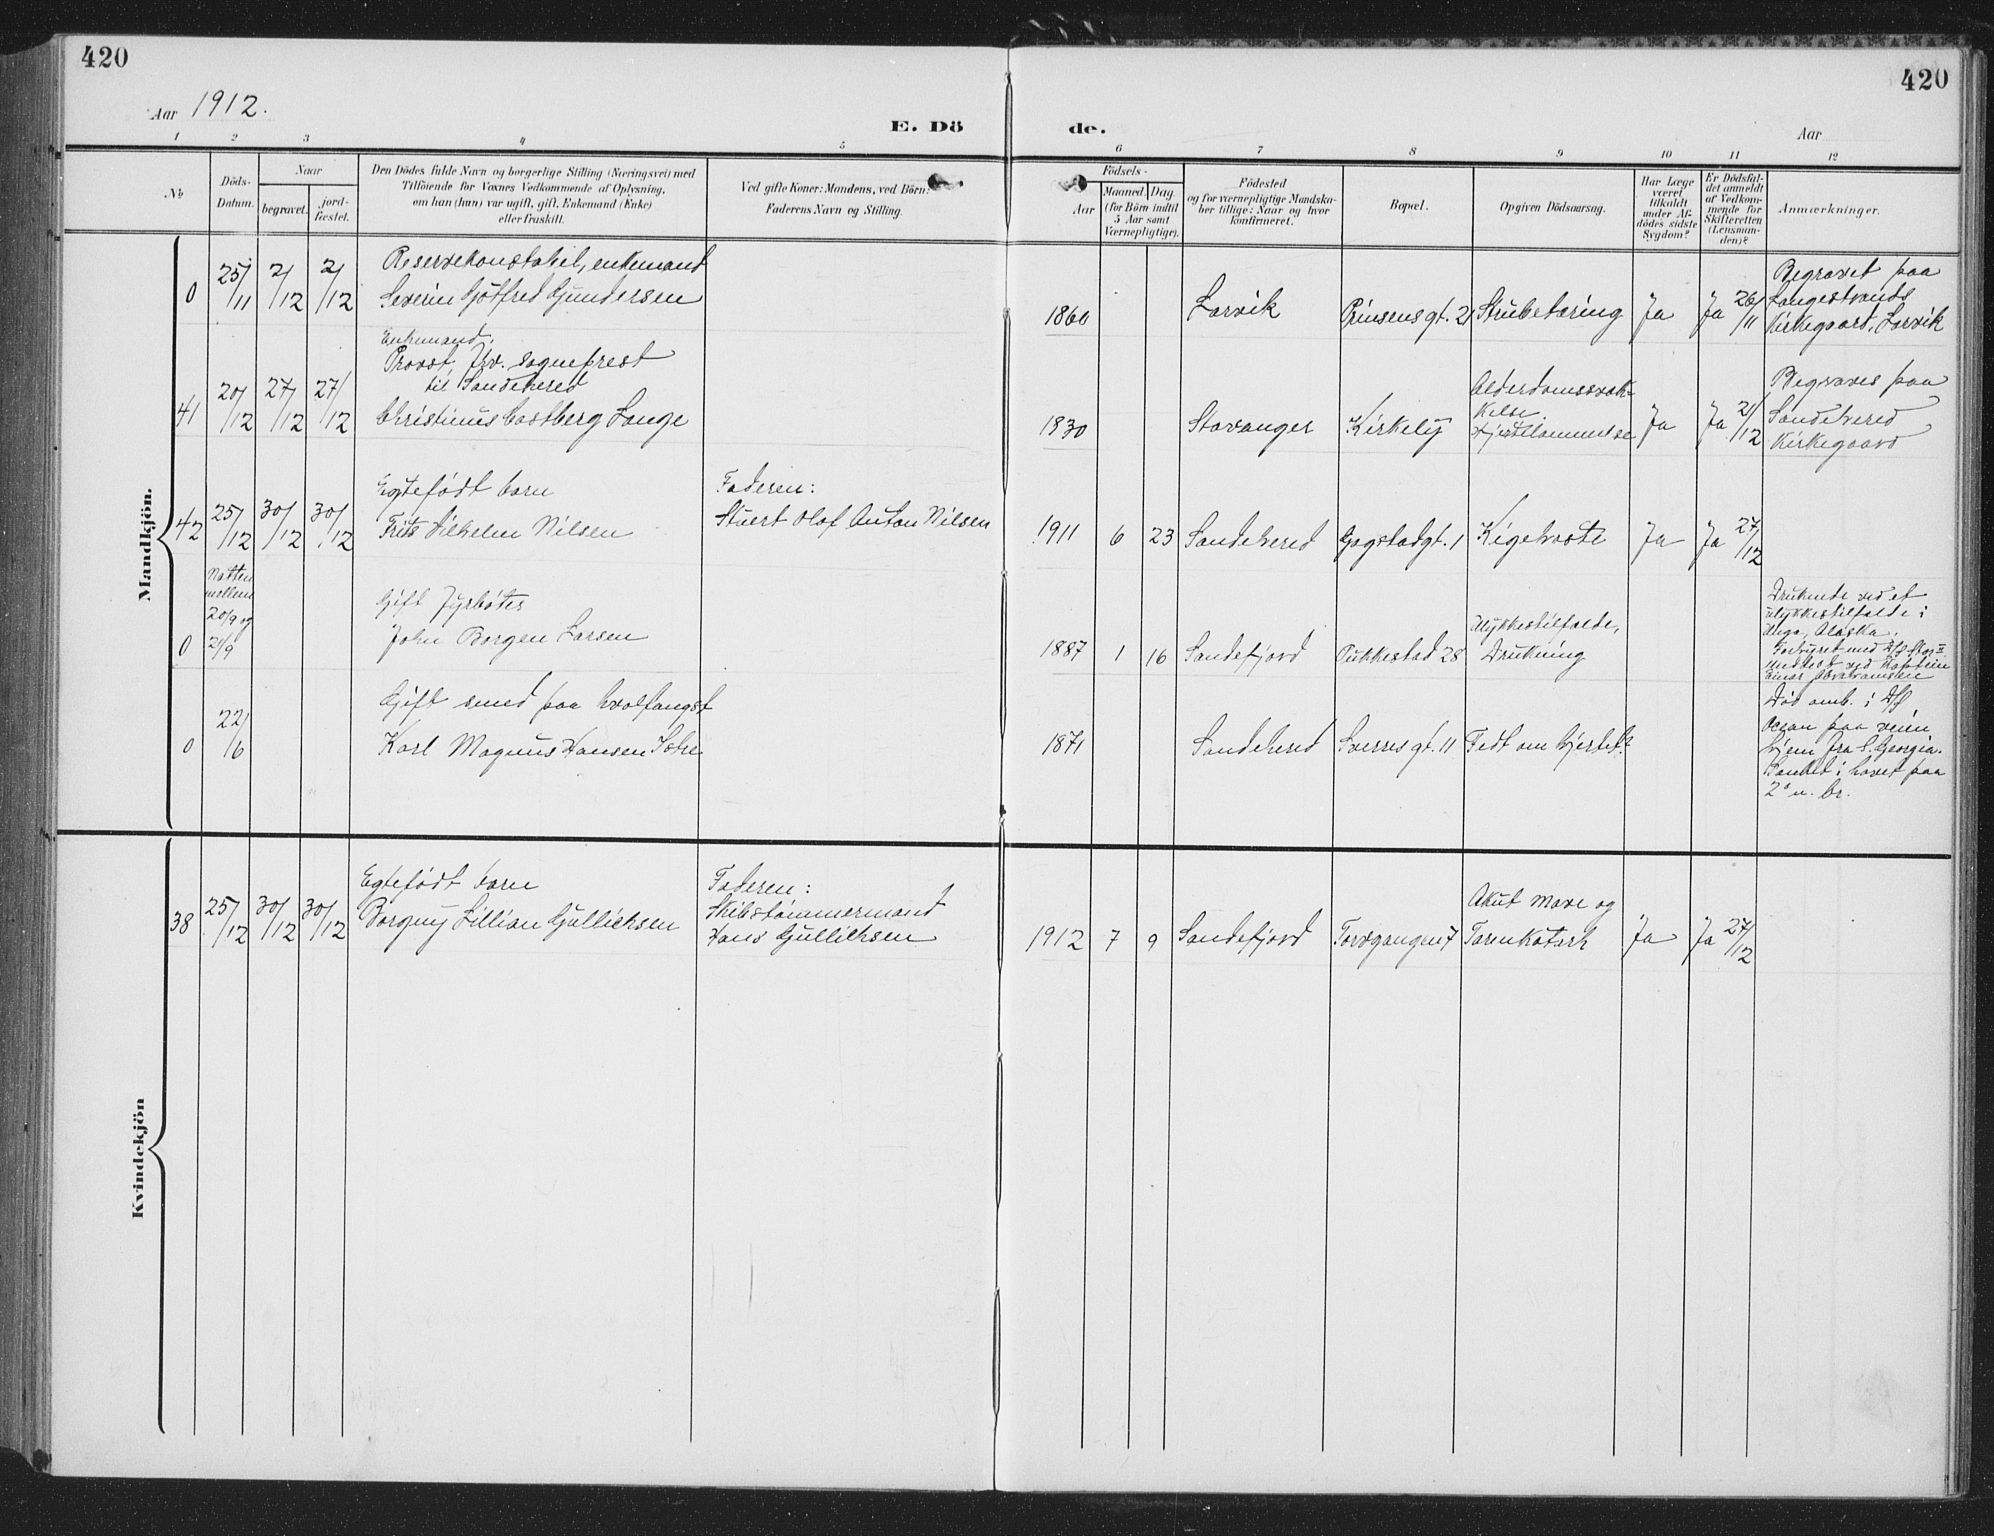 420
420
Aar 1912.
E. Döde.
Aar
1 2 3 4 5 6 7 8 9 10 11 12
No
Döds-
Datum.
Naar
begravet.
jord-
fæstet.
Den Dödes fulde Navn og borgerlige Stilling (Næringsvei) med
Tilföiende for Voxnes Vedkommende af Oplysning,
om han (hun) var ugift, gift, Enkemand (Enke)
eller fraskilt.
Ved gifte Koner: Mandens, ved Börn:
Faderens Navn og Stilling.
Födsels-
Aar
Maaned. Dag.
(for Börn indtil
5 Aar samt
Værnepligtige).
Födested
og for værnepligtige Mandska-
ber tillige: Naar og hvor
konfirmeret.
Bopæl.
Opgiven Dödsaarsag.
Har Læge
været
tilkaldt
under Af-
dödes sidste
Sygdom?
Er Dödsfal-
det anmeldt
af Vedkom-
mende for
Skifteretten
(Lensman-
den)?
Anmærkninger.
Mandkjön.
0 25/11 2/12 2/12
Reservekonstabel, enkemand
Severin Gotfred Gundersen
1860 Larvik Prinsensgt. 21 Strubetæring Ja Ja 26/11
Begravet paa
Langestrands
Kirkegaard, Larvik
41 20/12 27/12 27/12
Enkemand.
Provst, fhv. sogneprest
til Sandeherred
Christinus Castberg Lange
1830 Stavanger Kirkely
Alderdomssvæk-
kelse.
Hjertelammelse
Ja Ja 21/12
Begraves paa
Sandeherred
Kirkegaard
42 25/12 30/12 30/12
Egtefødt barn
Frits Vilhelm Nilsen
Faderen:
Stuert Olaf Anton Nilsen
1911 6 23 Sandeherred Gogstadgt. 1 Kighoste Ja Ja 27/12
0
Natten
mellem
20/9 og
21/9
Gift Fyrbøter
John Borgen Larsen
1887 1 16 Sandefjord Pukkestad 28
Ulykkestilfælde,
Drukning
Druknede ved et
ulykkestilfælde i
Unga, Alaska.
0 22/6
Gift smed paa hvalfangst
Karl Magnus Hansen
1871 Sandeherred Sverresgt. 11 Fedt om hjertet?
Død omb. i D/S
Ocean paa veien
hjem fra S. Georgia.
Sænket i havet paa
2° n. br.
Kvindekjön
38 25/12 30/12 30/12
Egtefødt barn
Borgny Lillian Gullichsen
Faderen:
Skibstømmermand
Hans Gullichsen
1912 7 9 Sandefjord Torvgangen 7
Akut mave og
Tarmkatarh
Ja Ja 27/12